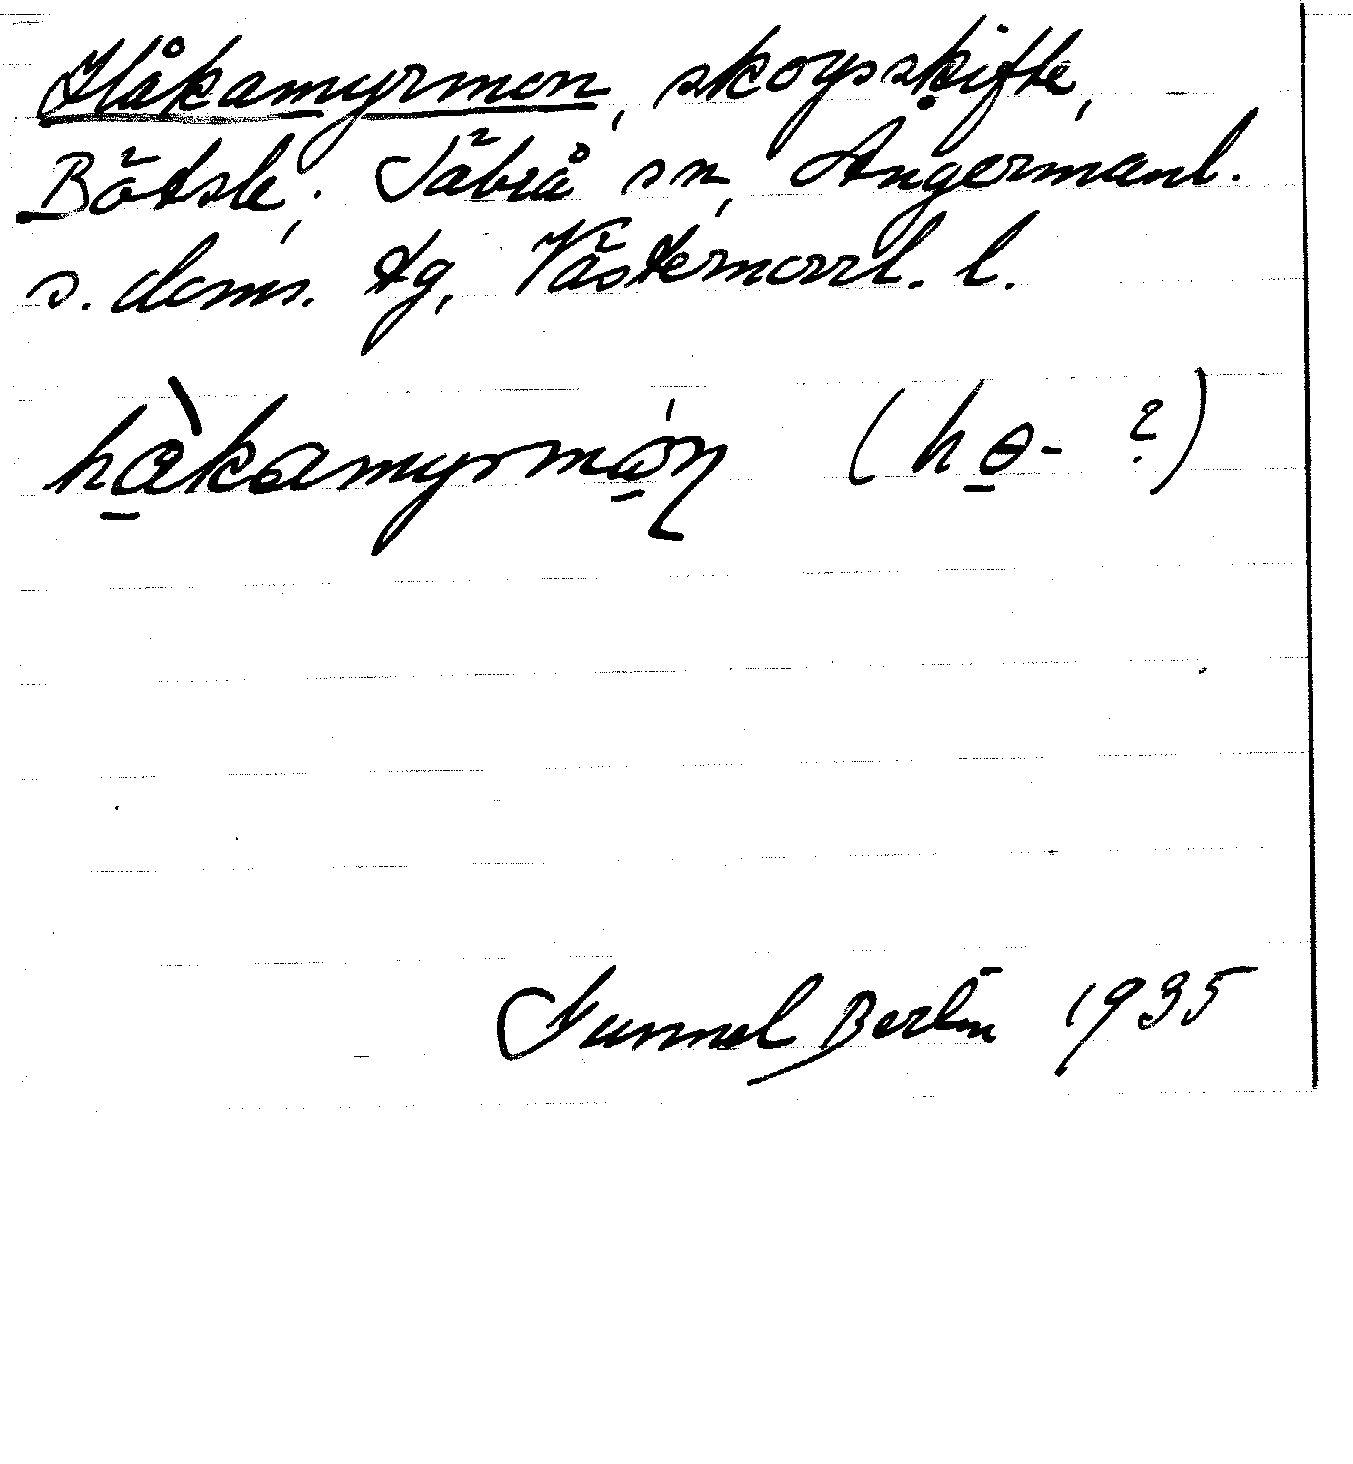 Håkamyrmon, skogsskifte,
Bölsle, Säbrå sn, Ångermanl.
s. doms. tg, Västernorrl. l.
hàkamyrmón (hɵ- ?)
Gunnel Berlin 1935